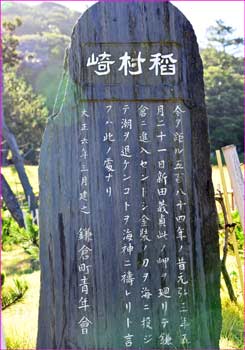 稻村崎
今ヲ距ル五百八十四年ノ昔元弘三年五
月二十一日新田義貞此ノ岬ヲ廻リテ鎌
倉ニ進入セントシ金裝ノ刀ヲ海ニ投ジ
テ潮ヲ退ケンコトヲ海神ニ禱レリト言
フハ此ノ處ナリ
大正六年三月建之 鎌倉町青年會